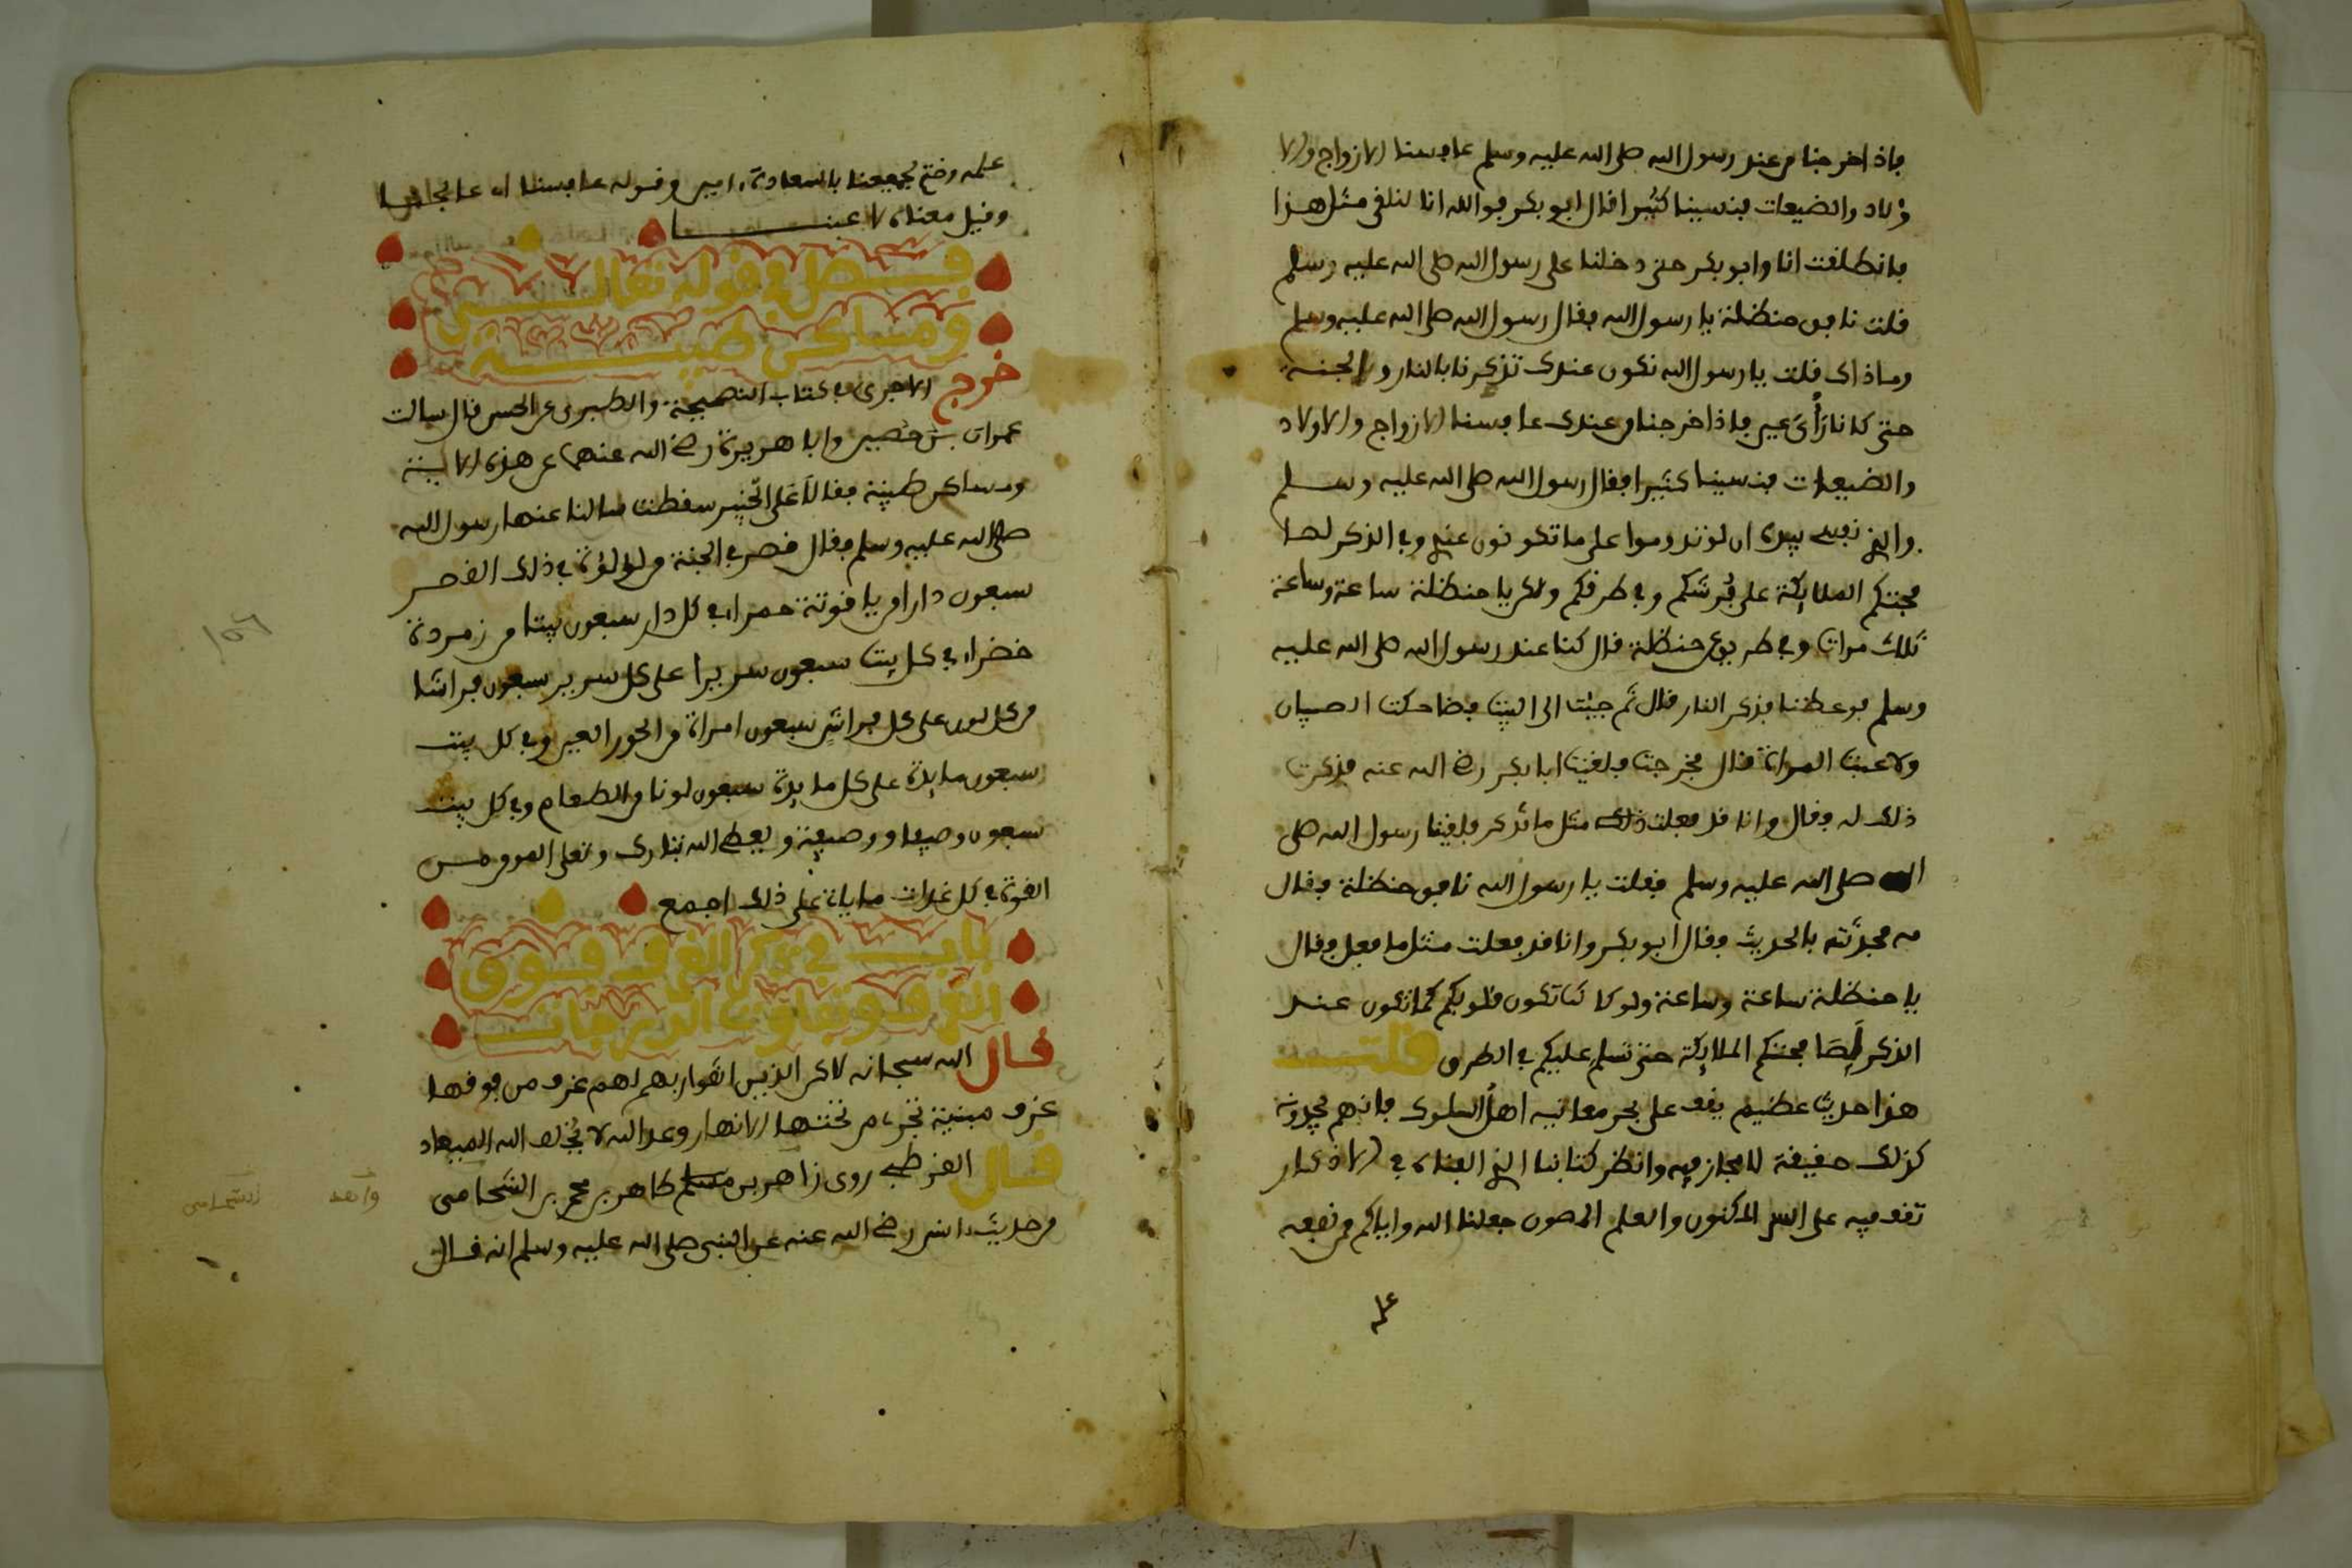 فاذا خرجنا من عند رسول الله صلى الله عليه وسلم عافسنا الازواج والا
ولاد والضيعات فنسينا كثيرا قال ابو بكر فوالله انا لنلقى مثل هذا
فانطلقت انا وابو بكر حتى دخلنا على رسول الله صلى الله عليه وسلم
قلت نافق حنظلة يا رسول الله فقال رسول الله صلى الله عليه وسلم
وما ذاك قلت يا رسول الله نكون عندك تذكرنا بالنار والجنة
حتى كانا رَأْىَ عين فاذا خرجنا من عندك عافسنا الازواج والاولاد
والضيعات فنسينا كثيرا فقال رسول الله صلى الله عليه وسلم
والذي نفسي بيده ان لو تدوموا على ما تكونون عندي وفي الذكر لصا
فحتكم الملايكة على فُرشكم وفي طرقكم ولكن يا حنظلة ساعة وساعة
ثلاث مرات وفي طريق حنظلة قال كنا عند رسول الله صلى الله عليه
وسلم فوعظنا فذكر النار قال ثم جيت الى البيت فضاحكت الصبيان
ولاعبت المراة قال فخرجت فلقيت ابا بكر رضي الله عنه فذكرت
ذلك له فقال وانا قد فعلت ذلك مثل ما تذكر فلقينا رسول الله صلى
الله صلى الله عليه وسلم فقلت يا رسول الله نافق حنظلة فقال
مه فحدَّثته بالحديث فقال ابو بكر وانا قد فعلت مثل ما فعل فقال
يا حنظلة ساعة وساعة ولو كانت تكون قلوبكم كما تكون عند
الذكر لصا فحتكم الملايكة حتى تسلم عليكم في الطرق قلت
هذا حديث عظيم يقف على بحر معانيه اهل السلوك فانهم يجدونه
كذلك حقيقة لا مجاز فيه وانظر كتابنا الذي الفناه في الاذكار
تقف فيه على السر المكنون والعلم المصون جعلنا الله واياكم ممن نفعه
علمه
علمه وختم لجميعنا بالسعادة امين وقوله عافسنا اي عالجنا
وقيل معناه لاعبنا
فصل في قوله تعالى
ومساكن طيبة
خرج الاجري في كتاب النصيحة والطبري عن الحسن قال سالت
عمران بن حصين وابا هريرة رضي الله عنهما عن هذه الاية
ومساكن طيبة فقالا على الخبير سقطت سالنا عنها رسول الله
صلى الله عليه وسلم فقال قصر في الجنة من لولوة في ذلك القصر
سبعون دارا من ياقوتة حمراء في كل دار سبعون بيتا من زمردة
خضراء في كل بيت سبعون سريرا على كل سرير سبعون فراشا
من كل لون على كل فراش سبعون امراة من الحور العين وفي كل بيت
سبعون مايدة على كل مايدة سبعون لونا من الطعام وفي كل بيت
سبعون وصيفا ووصيفة ويعطي الله تبارك وتعلى المومن من
القوة في كل غداة ما ياتي على ذلك اجمع
باب في ذكر الغرف فوق
الغرف وتفاوت الدرجات
قال الله سبحانه لاكن الذين اتقوا ربهم لهم غرف من فوقها
غرف مبنية تجري من تحتها الانهار وعد الله لا يخلف الله الميعاد
قال القرطبي روى زاهر بن مسلم طاهر بن محمد بن الشحامي
من حديث انس رضي الله عنه عن النبي صلى الله عليه وسلم انه قال
١٥٦